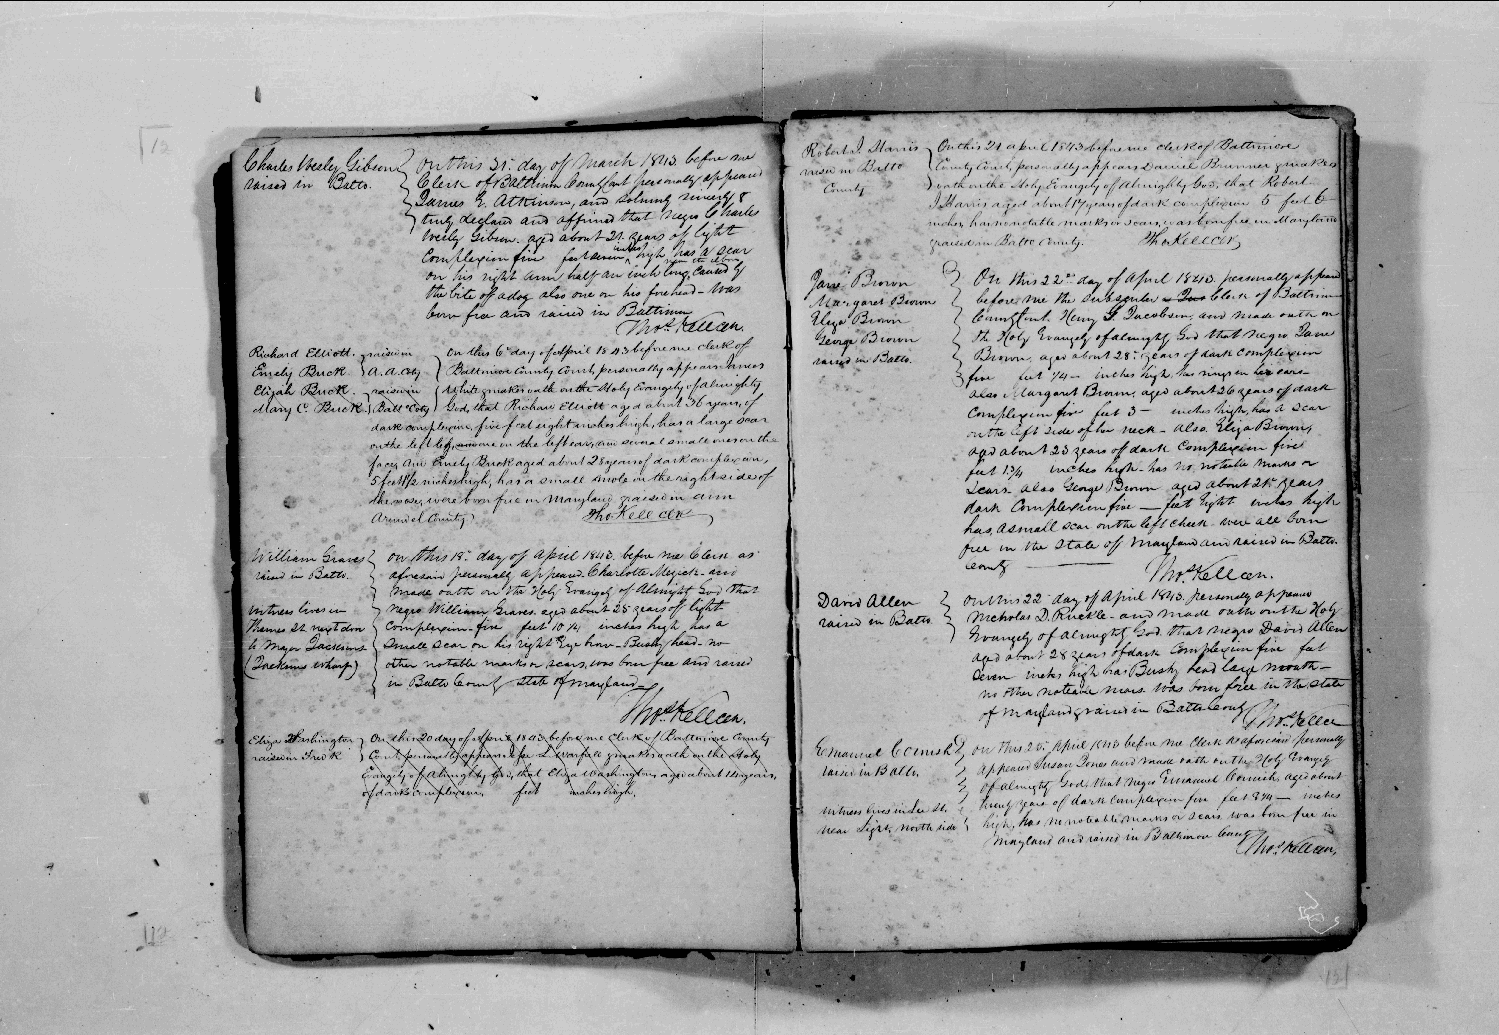 Charles Wesley Gibson
raised in Balto.
On this 31st day of March 1843 before me
Clerk of Baltimore County Court personally appeared
James E. Atkinson, and solemnly sincerely &
truly declared and affirmed that negro Charles
Wesly Gibson aged about 21 years of light
Complexion five feet seven inches high has a scar
on his right arm half an inch long, upon the elbow caused by
the bite of a dog also one on his forehead - was
born free and raised in Baltimore
Thos. Kell Clk.
Richard Elliott. raised in
Emely Buck A.A. Coty
Elijah Buck. raised in
Mary C. Buck Balto Coty
On this 6th day of April 1843 before me clerk of
Baltimore County Court, personally appears James
White & makes oath on the Holy Evangely of almighty
God, that Richard Elliott aged about 36 years, of
dark complexion, five feet eight inches high, has a large scar
on the left leg, one on the left ear, and several small ones on the
face, and Emely Buck aged about 28 years of dark complexion,
5 feet 1/2 inches high, has a small mole on the right side of
the nose, were born free in Maryland & raised in ann
Arundel County.
Tho Kell Clk
William Graves
raised in Balto.
witness lives in
Thames St. next door
to Major Jacksons
(Jacksons wharf)
On this 18th day of April 1843. before me Clerk as
aforesaid personally appeared Charlotte Megick and
made oath on the Holy Evangely of Almight God that
negro William Graves aged about 25 years of light
Complexion - five feet 10 1/4 inches high has a
small scar on his right Eye brow - Bushy head - no
other notable marks or scars, was born free and raised
in Balto County State of Maryland
Thos. Kell Clk.
Eliza Washington
raised in Fredk
On this 20 day of April 1843 before me clerk of Baltimore County
Court personally appeared L. Warfall & makes oath on the Holy
Evangely of Almighty God, that Eliza Washington, aged about years,
of dark complexion, feet inches high,
Robert J. Harris
raised in Balto
County
On this 21 april 1843 before me clerk of Baltimore
County Court, personally appears Daniel Brunner & makes
oath on the Holy Evangely of Almighty God, that Robert
J Harris aged about 17 years of dark complexion 5 feet 6
inches, has no notable marks or scars, was born free in Maryland
& raised in Balto County.
Tho Kell Clk,
Jane Brown
Margaret Brown
Eliza Brown
George Brown
raised in Balto.
On this 22nd day of April 1843. personally appeared
before me the subscriber Clerk of Baltimore
County Court. Henry G. Jacobson, and made oath on
the Holy Evangely of almighty God that negro Jane
Brown, aged about 28 years of dark complexion
five feet 1/4 - inches high, has rings in her ears
also Margaret Brown, aged about 26 years of dark
Complexion five feet 3 - inches high, has a scar
on the left side of her neck - also Eliza Brown,
aged about 23 years of dark Complexion five
feet 1 3/4 inches high - has no notable marks or
scars - also George Brown aged about 21 years
dark Complexion five - feet Eight inches high
has a small scar on the left cheek - were all born
free in the State of Maryland and raised in Balto.
County
Thos. Kell Clk.
David Allen
raised in Balto
On this 22 day of April 1843. personally appeared
Nicholas D. Ruckle - and made oath on the Holy
Evangely of almighty God that negro David Allen
aged about 28 years of dark Complexion five feet
seven inches high has Bushy head large mouth -
no other notable mars was born free in the state
of Maryland & raised in Balto County
Thos. Kell Clk
Emanuel Cornish
raised in Balto.
witness lives in Lee St.
near Light, north side
On this 25th April 1843 before me Clerk as aforesaid personally
appeared Susan Jones and made oath on the Holy Evangely
of almighty God, that Negro Emanuel Cornish, aged about
twenty years of dark Complexion five feet 8 1/4 - inches
high, has no notable marks or scars was born free in
Maryland and raised in Baltimore County
Thos. Kell Clk,